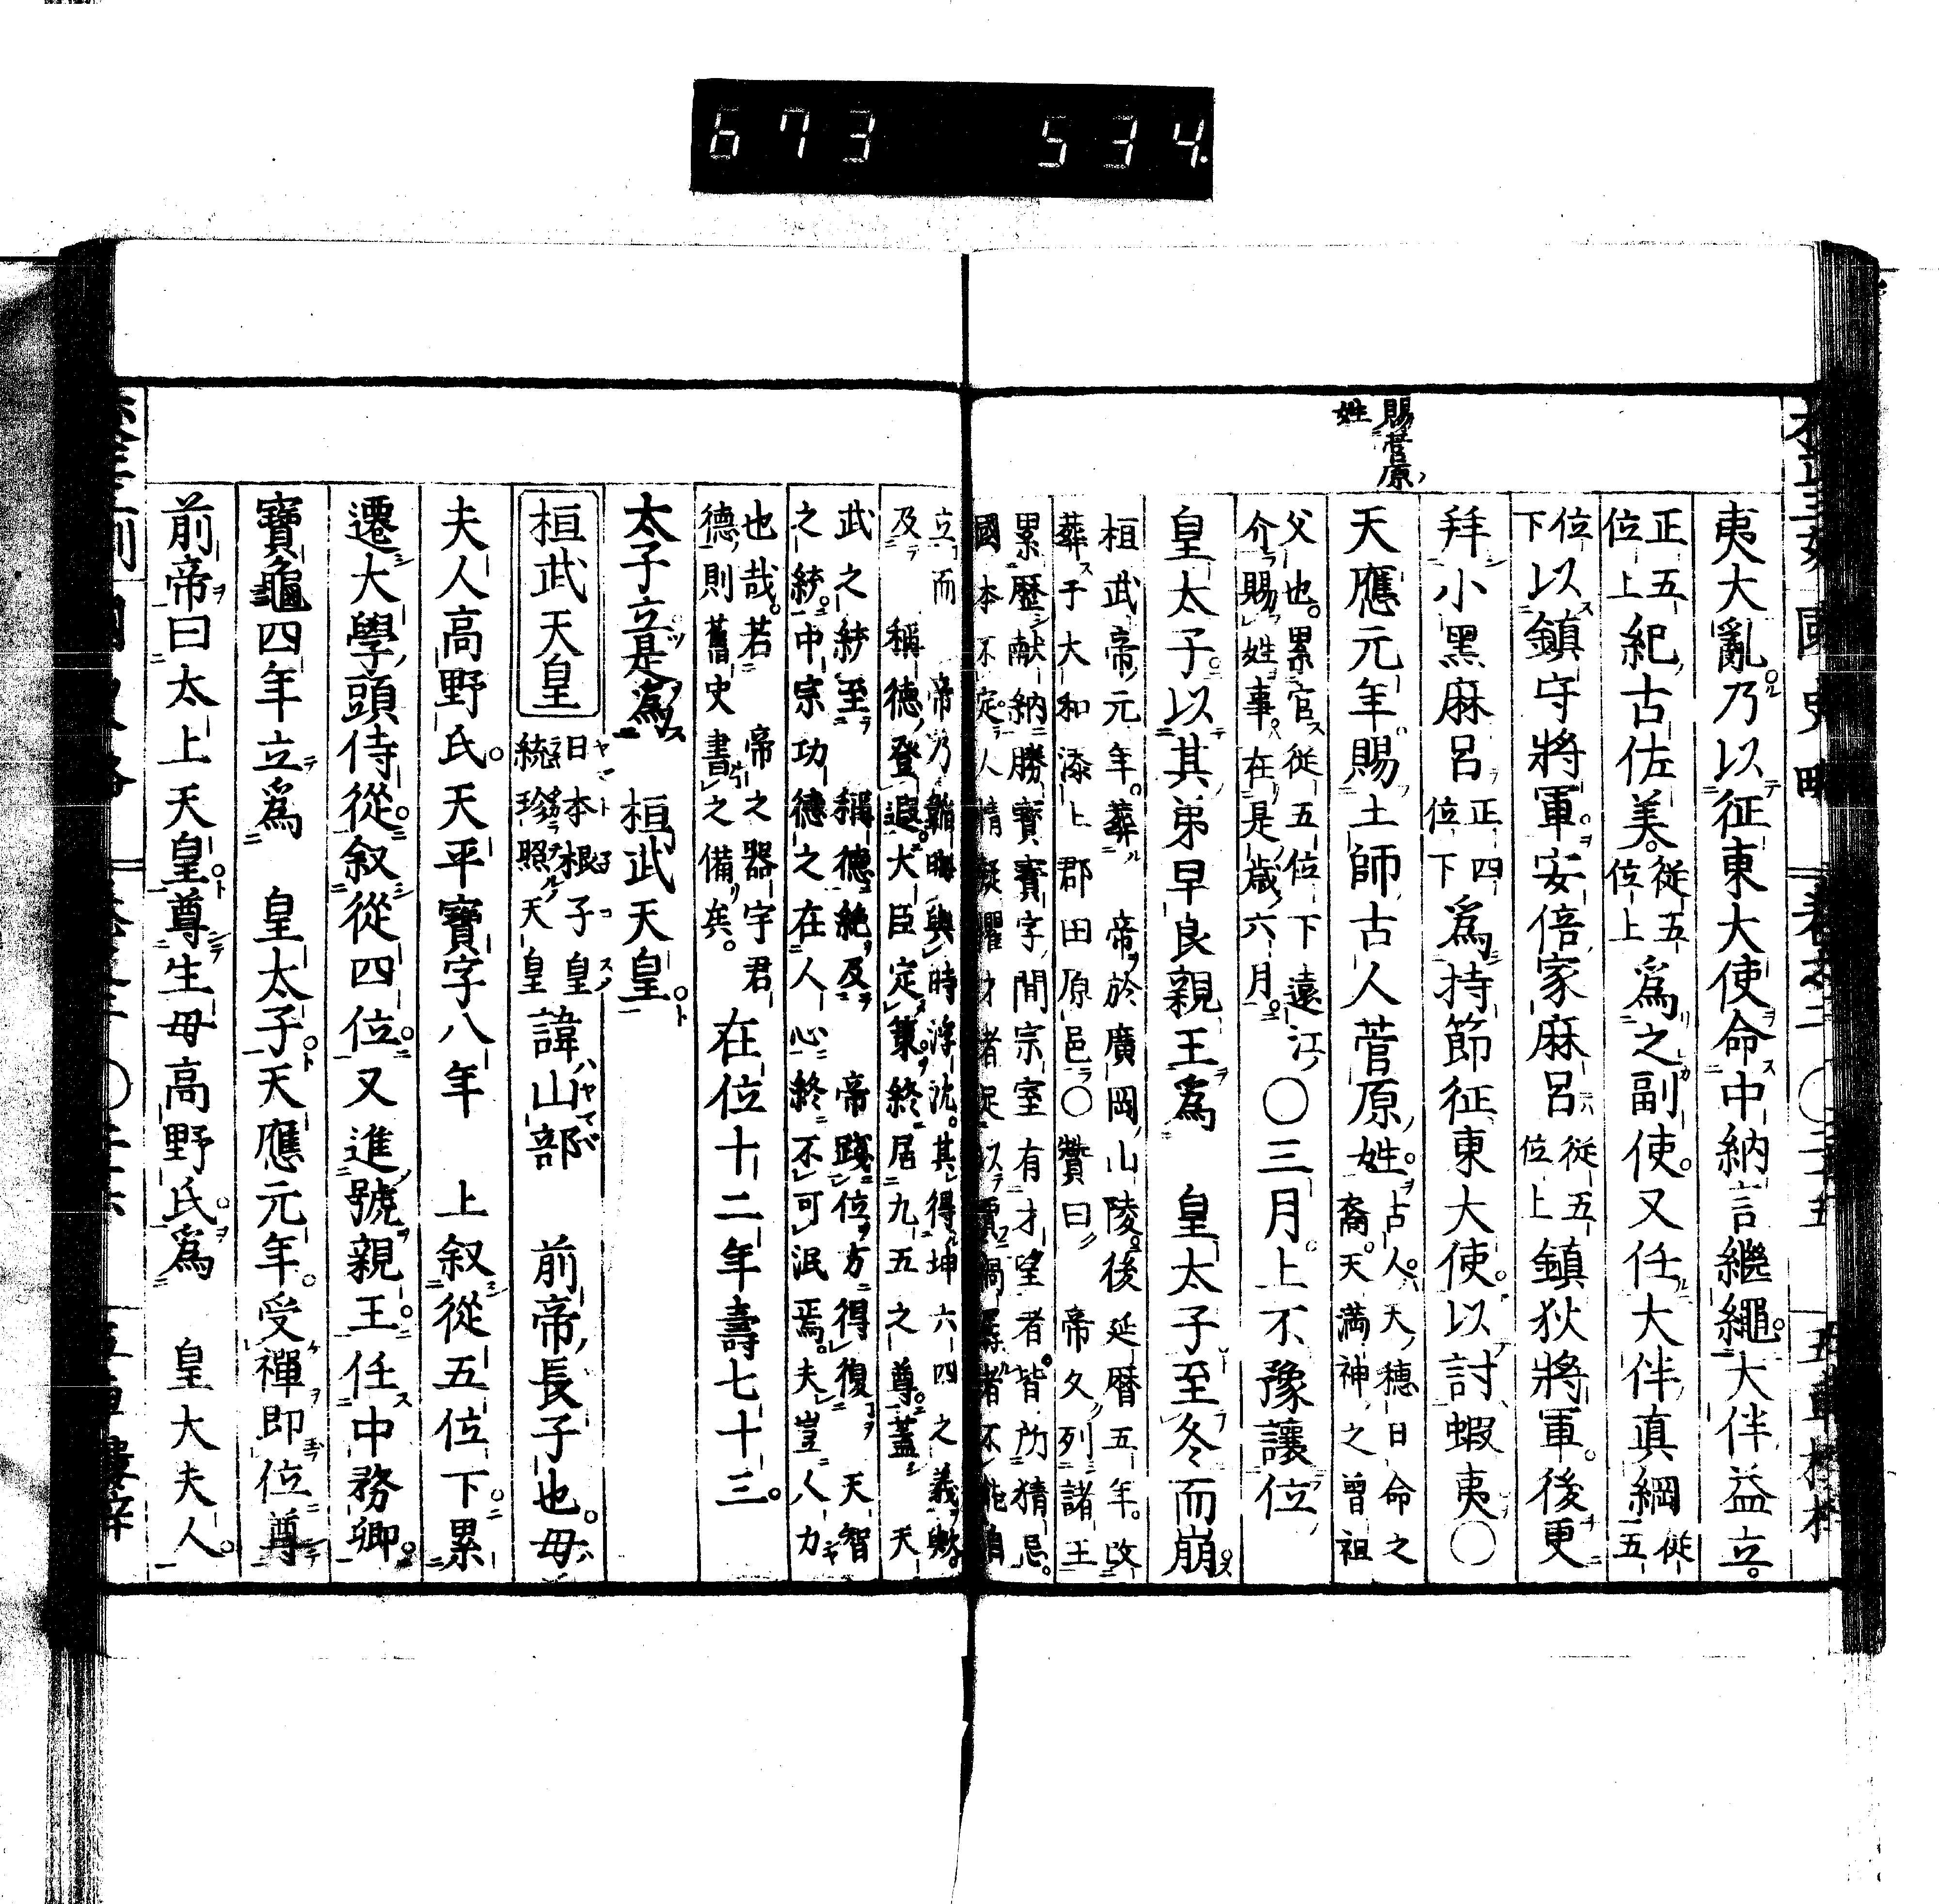 673 534
賜菅原
姓
夷大亂乃以征東大使命中納言繼繩大伴益立
正五位上紀古佐美從五位上爲之副使又任大伴眞綱從五
位下以鎮守將軍安倍家麻呂從五位上鎮狄將軍後更
拜小黑麻呂正四位下爲持節征東大使以討蝦夷〇
天應元年賜土師古人菅原姓古人天穗日命之裔天滿神之曾祖
父也累官從五位下遠江介賜姓事在是歲六月〇三月上不豫讓位
皇太子以其弟早良親王爲 皇太子至冬而崩
桓武帝元年葬 帝於廣岡山陵後延曆五年改
葬于大和添上郡田原邑〇贊曰 帝久列諸王
累歷獻納勝寶寶字間宗室有才望者皆所猜忌
國本不定人情疑懼才者足以賈禍
立而 帝乃韜晦與時浮沈其得坤六四之義歟
及 稱德登遐大臣定策終居九五之尊蓋 天
武之統至 稱德絶及 帝踐位方得復 天智
之統中宗功德之在人心終不可泯焉夫豈人力
也哉若 帝之器宇君德則舊史書之備矣在位十二年壽七十三
太子立是爲 桓武天皇
桓武天皇 日本根子皇統珍照天皇 諱山部 前帝長子也母
夫人高野氏天平寶字八年 上叙從五位下累
遷大學頭侍從叙從四位又進號親王任中務卿
寶龜四年立爲 皇太子天應元年受禪即位尊
前帝曰太上天皇尊生母高野氏爲 皇大夫人